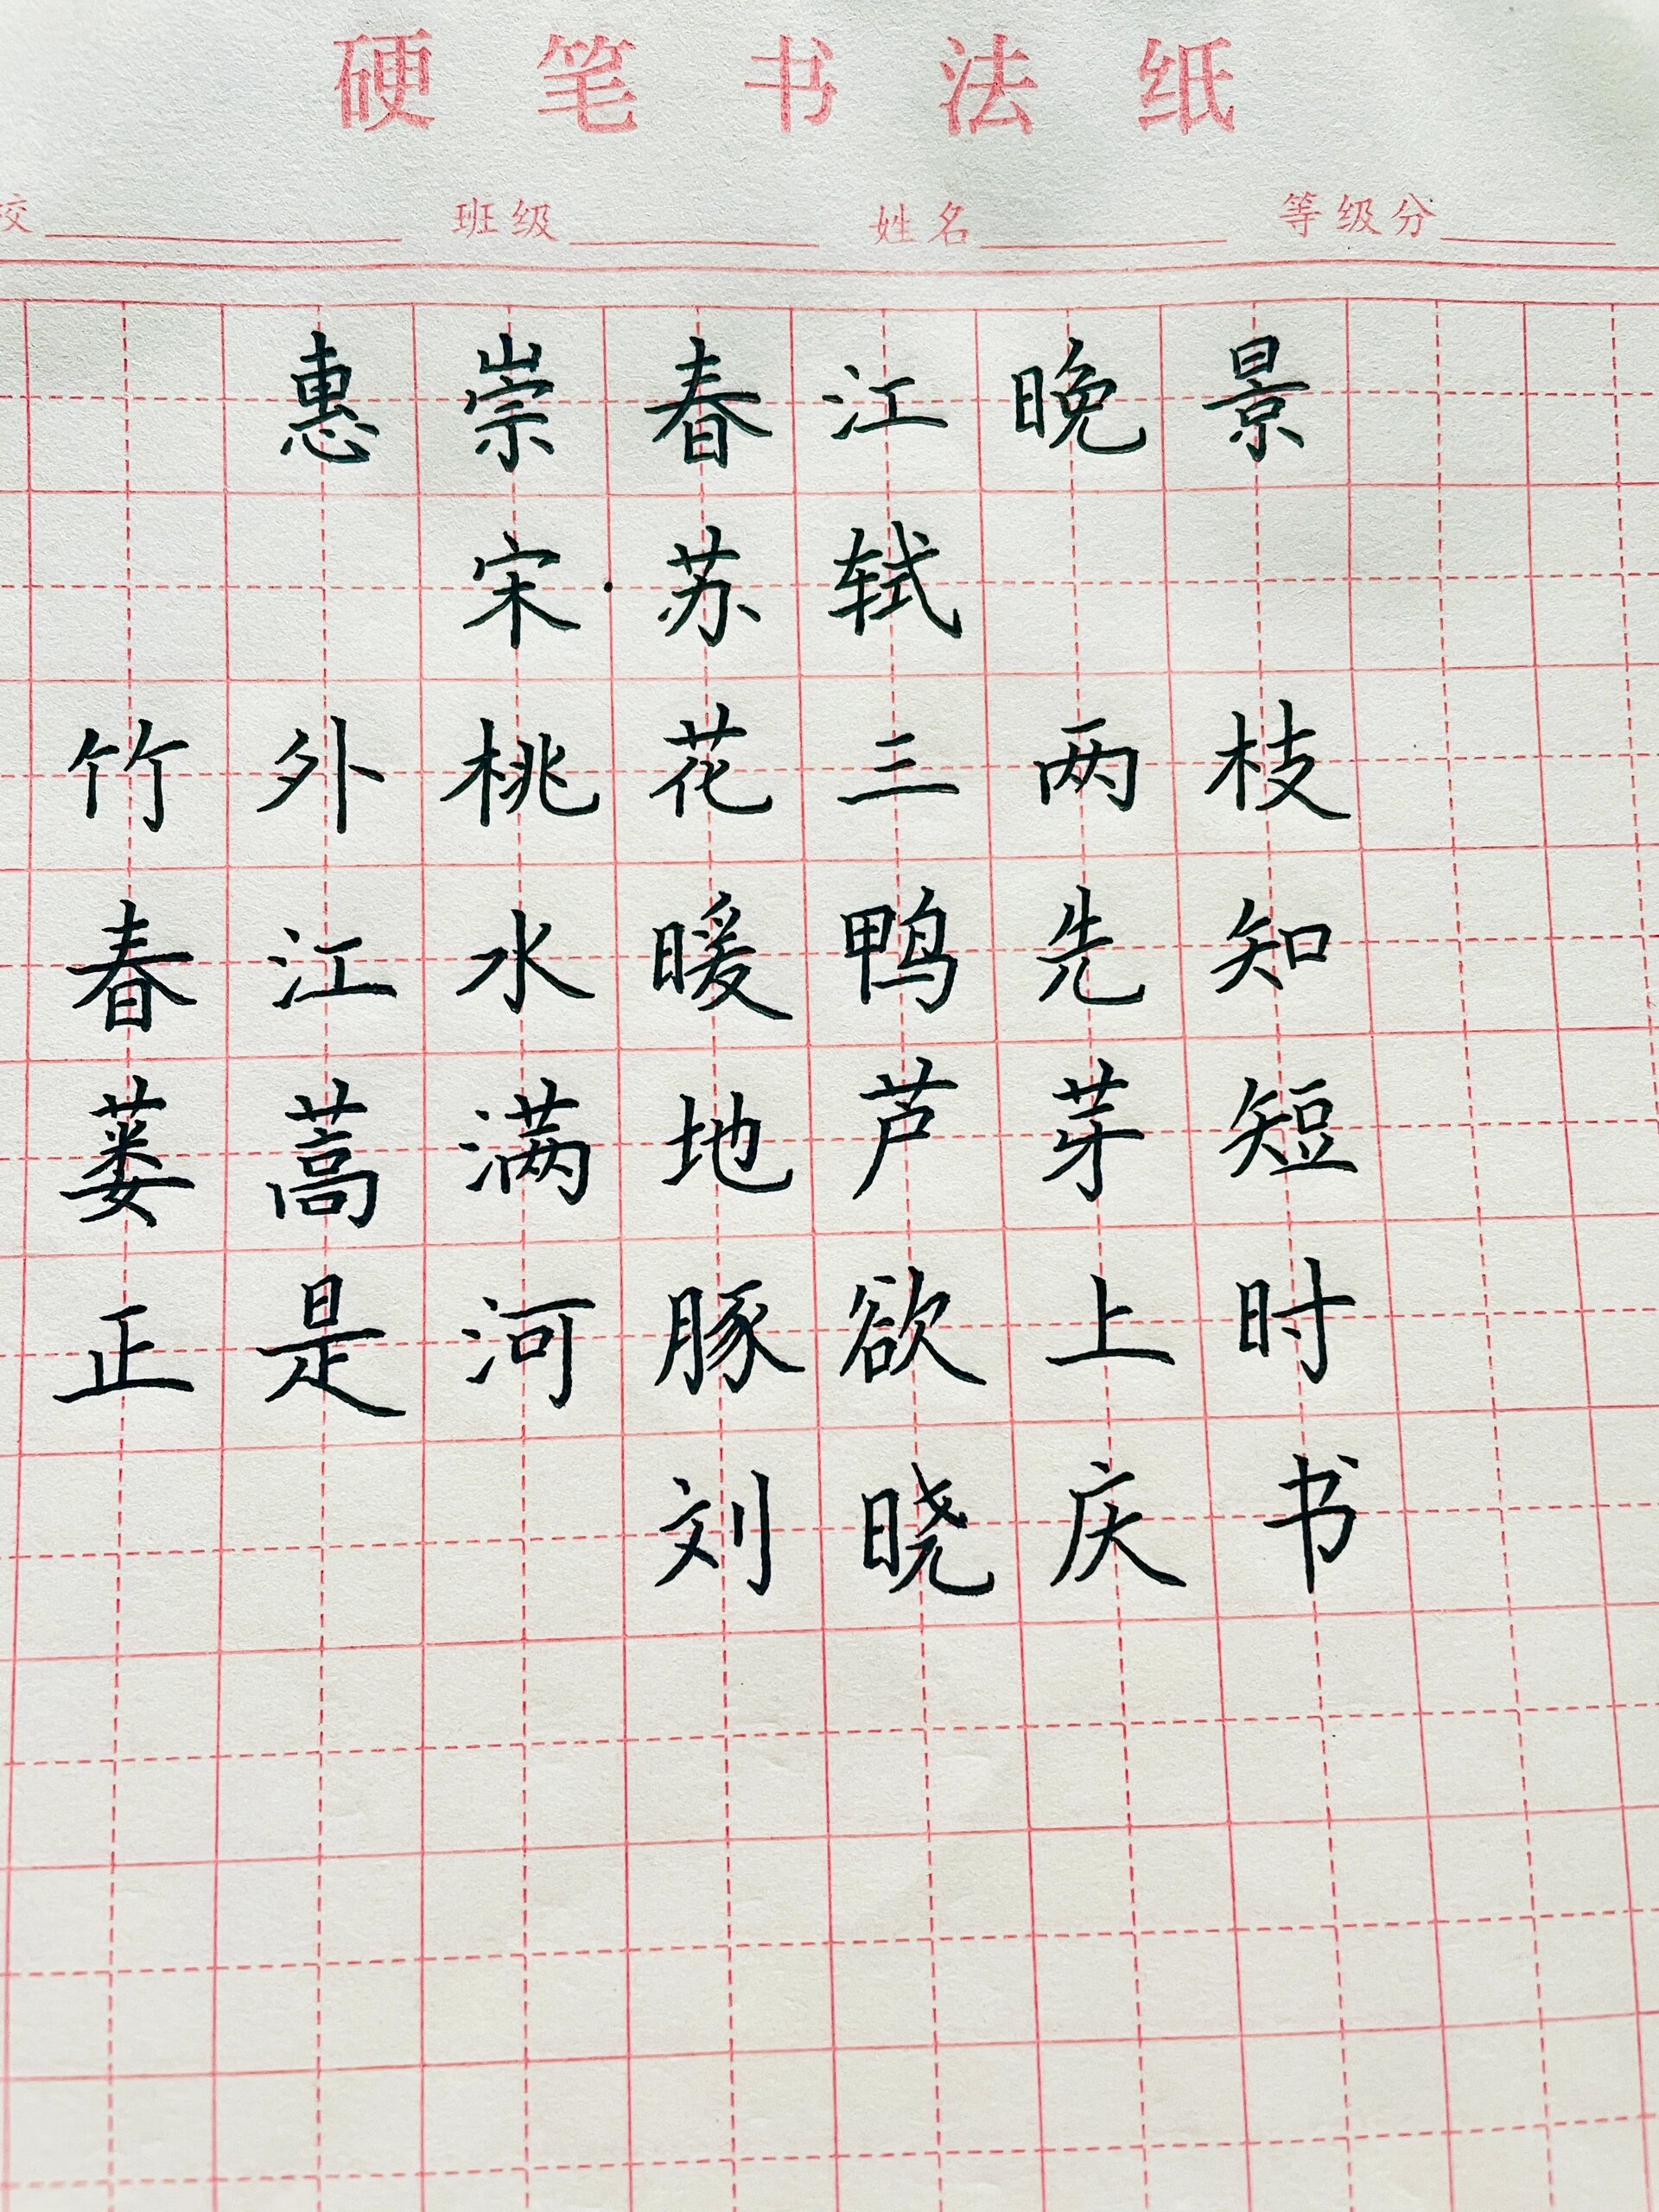 硬笔书法纸
校 班级 姓名 等级分
惠崇春江晚景
宋·苏轼
竹外桃花三两枝
春江水暖鸭先知
蒌蒿满地芦芽短
正是河豚欲上时
刘晓庆书